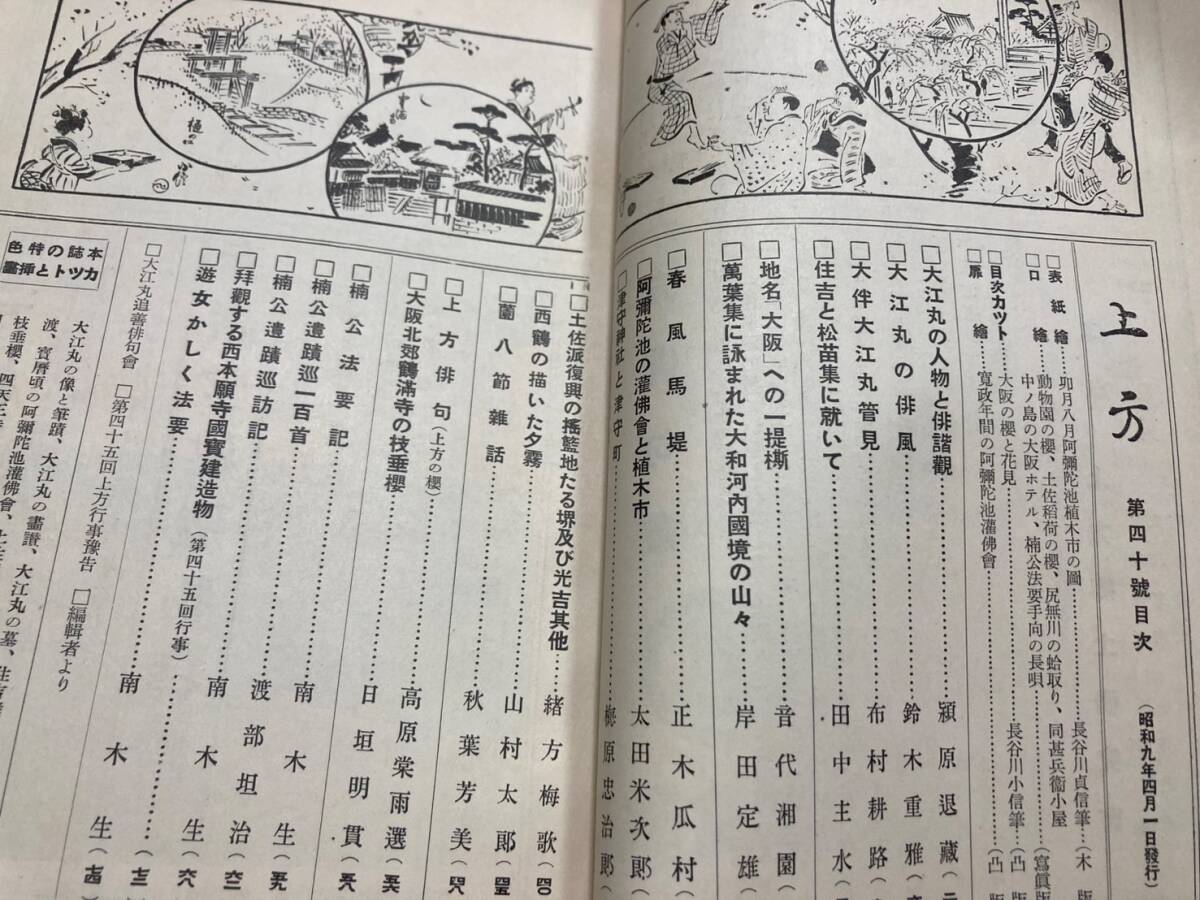 上方 第四十號目次 (昭和九年四月一日發行)
□表紙繪 卯月八月阿彌陀池植木市の圖……長谷川貞信筆…(木版
□口繪 動物園の櫻、土佐稻荷の櫻、尻無川の蛤取り、同甚兵衞小屋
中ノ島の大阪ホテル、楠公法要手向の長唄……(寫眞版
□目次カット 大阪の櫻と花見……長谷川小信筆…(凸版
□扉繪 寛政年間の阿彌陀池灌佛會……(凸版
□大江丸の人物と俳諧觀……潁原退藏(二
□大江丸の俳風……鈴木重雅(
□大伴大江丸管見……布村耕路(
□住吉と松苗集に就いて……田中主水(
□地名「大阪」への一提撕……音代湘園(
□萬葉集に詠まれた大和河內國境の山々……岸田定雄(
□春風馬堤……正木瓜村(
□阿彌陀池の灌佛會と植木市……太田米次郞(
□津守神社と津守町……梅原忠治郞(
□土佐派復興の搖籃地たる堺及び光吉其他……緒方梅歌(四〇
□西鶴の描いた夕霧……山村太郞(四五
□薗八節雜話……秋葉芳美(四九
□上方俳句(上方の櫻)……高原棠雨選(五六
□大阪北郊鶴滿寺の枝垂櫻……日垣明貫(五八
□楠公法要記……南木生(五九
□楠公遺蹟巡一百首……渡部垣治(六二
□楠公遺蹟巡訪記……南木生(六八
□拜觀する西本願寺國寶建造物(第四十五回行事)……(七三
□遊女かしく法要……南木生(七四
□大江丸追善俳句會 □第四十五回上方行事豫告 □編輯者より
本誌の特色
カツトと挿畫
大江丸の像と筆蹟、大江丸の畫讃、大江丸の墓、
渡、寶曆頃の阿彌陀池灌佛會、
枝垂櫻、四天王寺